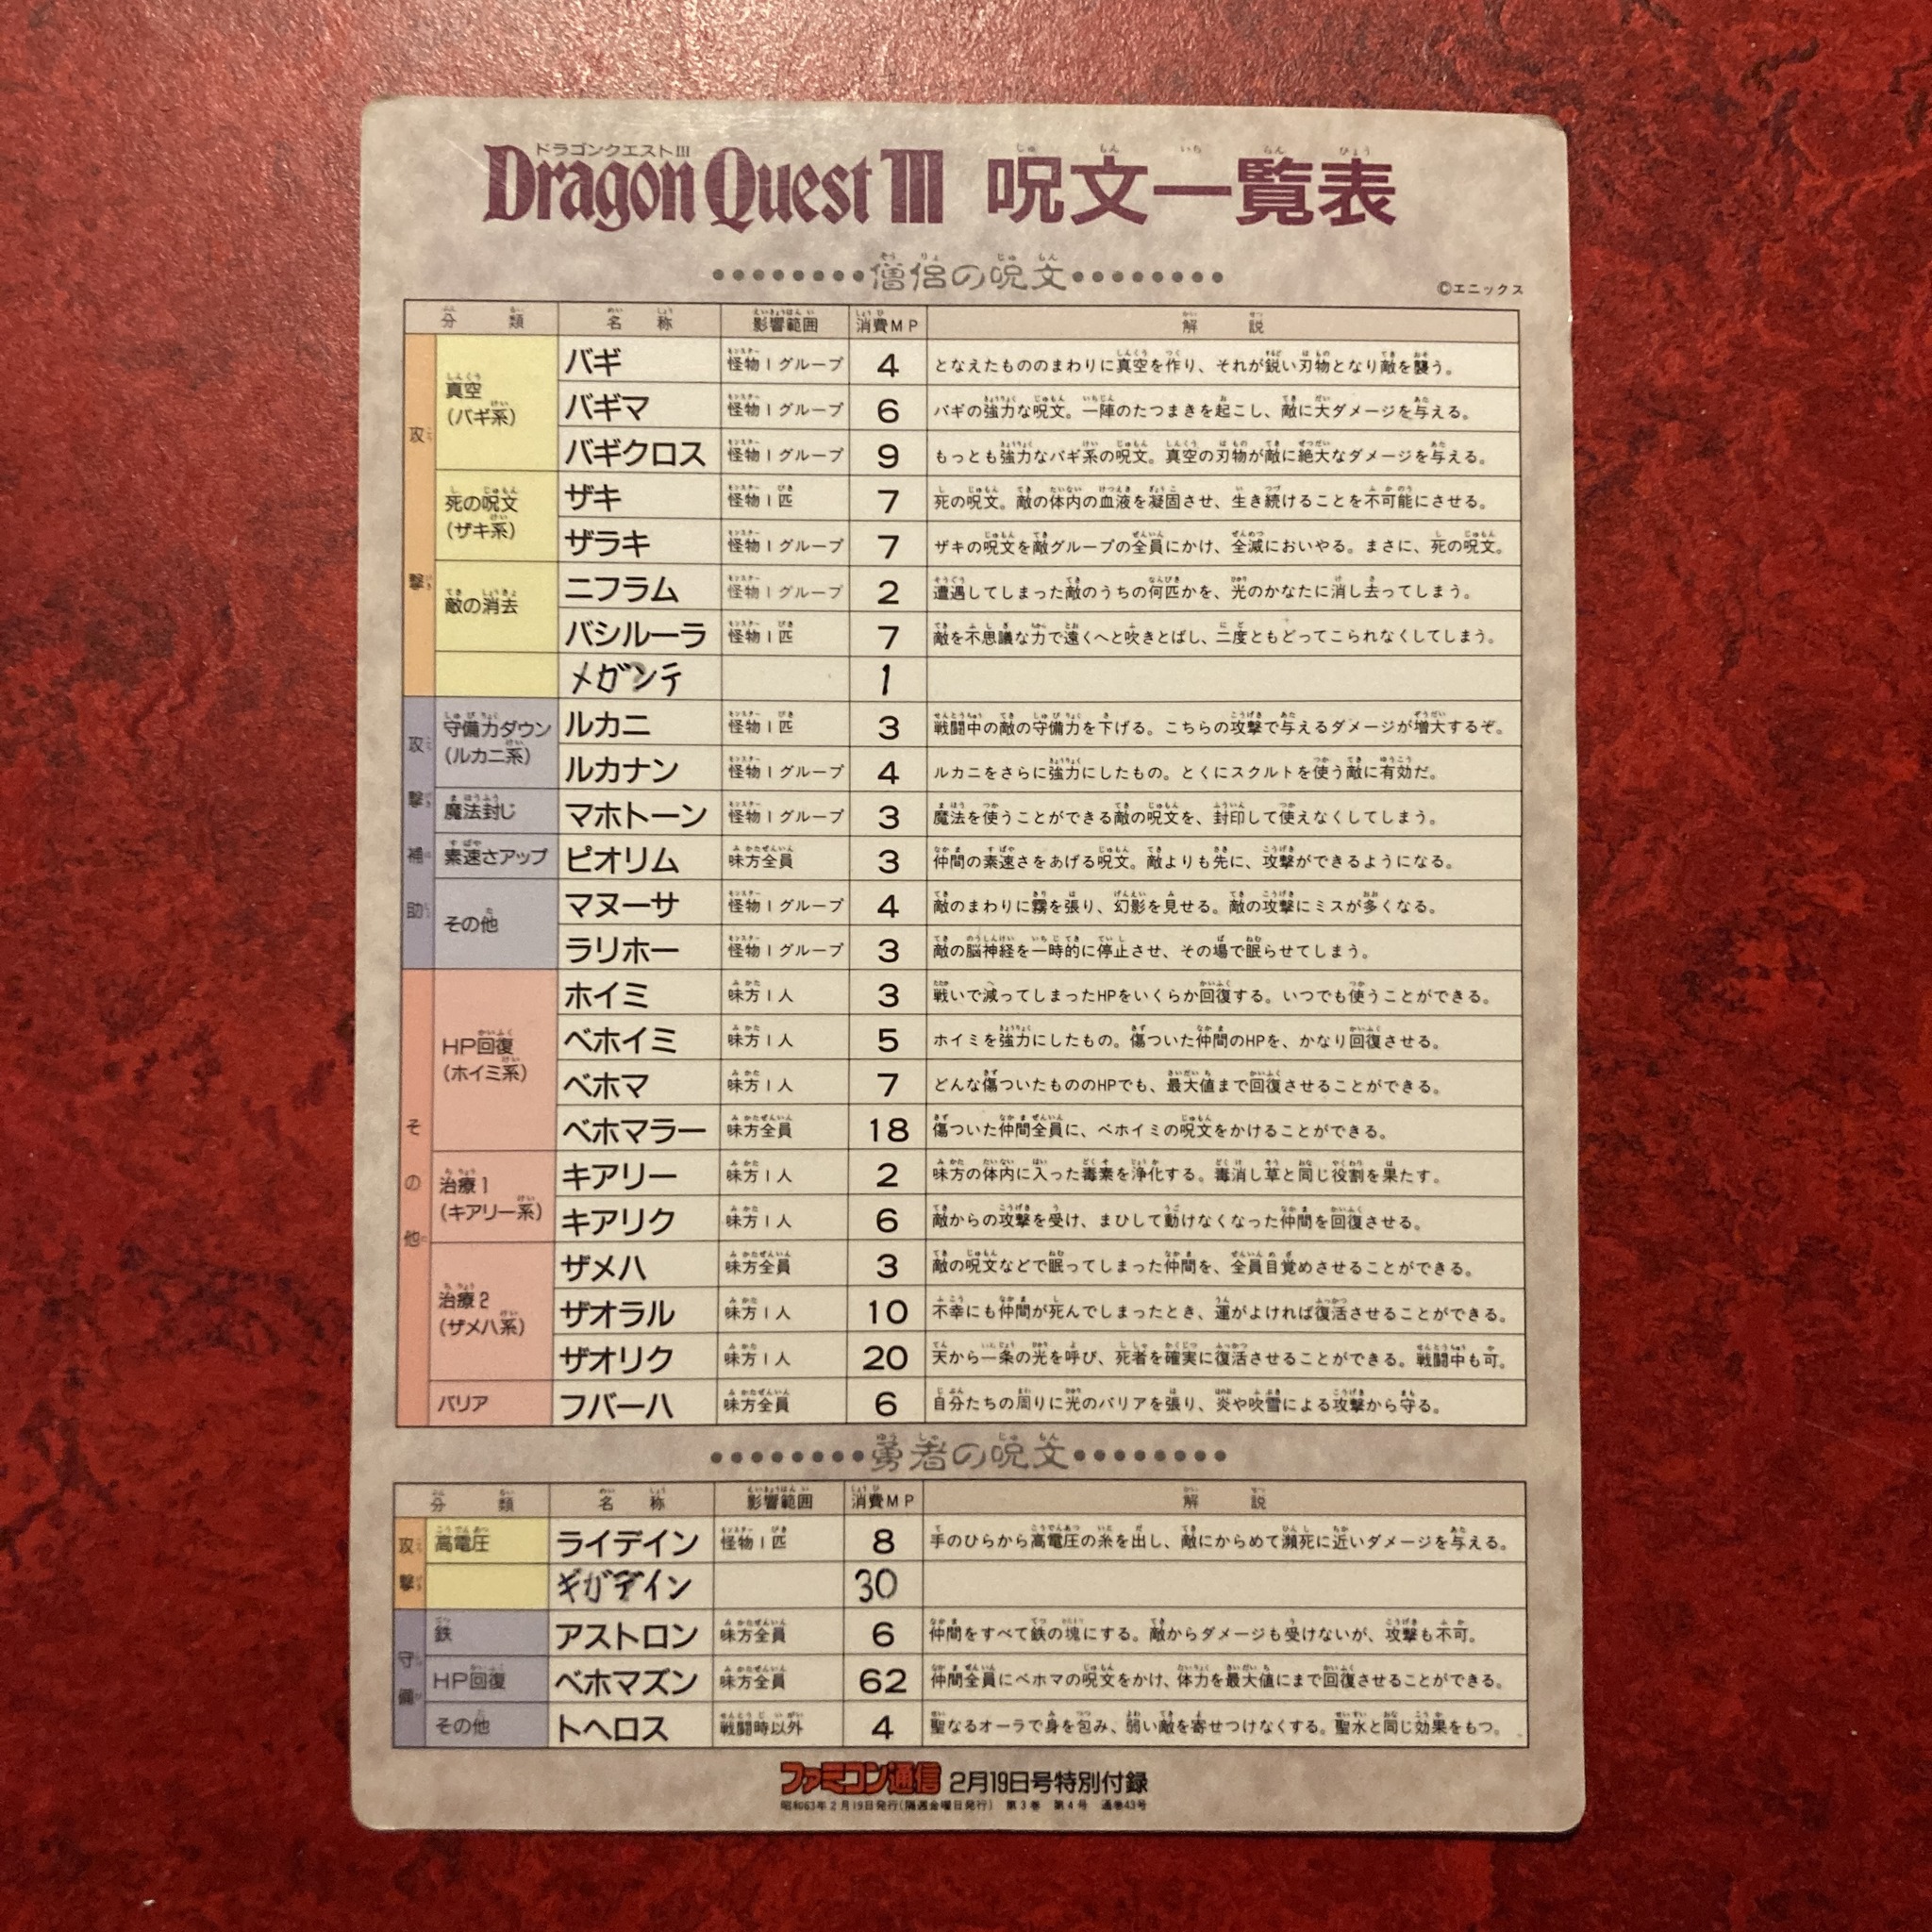 ドラゴンクエストⅢ
Dragon Quest III 呪文一覧表
僧侶の呪文
©エニックス
分類 名称 影響範囲 消費MP 解説
攻撃
真空(バギ系)
バギ 怪物1グループ 4 となえたもののまわりに真空を作り、それが鋭い刃物となり敵を襲う。
バギマ 怪物1グループ 6 バギの強力な呪文。一陣のたつまきを起こし、敵に大ダメージを与える。
バギクロス 怪物1グループ 9 もっとも強力なバギ系の呪文。真空の刃物が敵に絶大なダメージを与える。
死の呪文(ザキ系)
ザキ 怪物1匹 7 死の呪文。敵の体内の血液を凝固させ、生き続けることを不可能にさせる。
ザラキ 怪物1グループ 7 ザキの呪文を敵グループの全員にかけ、全滅においやる。まさに、死の呪文。
敵の消去
ニフラム 怪物1グループ 2 遭遇してしまった敵のうちの何匹かを、光のかなたに消し去ってしまう。
バシルーラ 怪物1匹 7 敵を不思議な力で遠くへと吹きとばし、二度ともどってこられなくしてしまう。
メガンテ 1
攻撃補助
守備力ダウン(ルカニ系)
ルカニ 怪物1匹 3 戦闘中の敵の守備力を下げる。こちらの攻撃で与えるダメージが増大するぞ。
ルカナン 怪物1グループ 4 ルカニをさらに強力にしたもの。とくにスクルトを使う敵に有効だ。
魔法封じ マホトーン 怪物1グループ 3 魔法を使うことができる敵の呪文を、封印して使えなくしてしまう。
素速さアップ ピオリム 味方全員 3 仲間の素速さをあげる呪文。敵よりも先に、攻撃ができるようになる。
その他
マヌーサ 怪物1グループ 4 敵のまわりに霧を張り、幻影を見せる。敵の攻撃にミスが多くなる。
ラリホー 怪物1グループ 3 敵の脳神経を一時的に停止させ、その場で眠らせてしまう。
その他
HP回復(ホイミ系)
ホイミ 味方1人 3 戦いで減ってしまったHPをいくらか回復する。いつでも使うことができる。
ベホイミ 味方1人 5 ホイミを強力にしたもの。傷ついた仲間のHPを、かなり回復させる。
ベホマ 味方1人 7 どんな傷ついたもののHPでも、最大値まで回復させることができる。
ベホマラー 味方全員 18 傷ついた仲間全員に、ベホイミの呪文をかけることができる。
治療1(キアリー系)
キアリー 味方1人 2 味方の体内に入った毒素を浄化する。毒消し草と同じ役割を果たす。
キアリク 味方1人 6 敵からの攻撃を受け、まひして動けなくなった仲間を回復させる。
治療2(ザメハ系)
ザメハ 味方全員 3 敵の呪文などで眠ってしまった仲間を、全員目覚めさせることができる。
ザオラル 味方1人 10 不幸にも仲間が死んでしまったとき、運がよければ復活させることができる。
ザオリク 味方1人 20 天から一条の光を呼び、死者を確実に復活させることができる。戦闘中も可。
バリア フバーハ 味方全員 6 自分たちの周りに光のバリアを張り、炎や吹雪による攻撃から守る。
勇者の呪文
分類 名称 影響範囲 消費MP 解説
攻撃
高電圧 ライデイン 怪物1匹 8 手のひらから高電圧の糸を出し、敵にからめて瀕死に近いダメージを与える。
ギガデイン 30
守備
鉄 アストロン 味方全員 6 仲間をすべて鉄の塊にする。敵からダメージも受けないが、攻撃も不可。
HP回復 ベホマズン 味方全員 62 仲間全員にベホマの呪文をかけ、体力を最大値にまで回復させることができる。
その他 トヘロス 戦闘時以外 4 聖なるオーラで身を包み、弱い敵を寄せつけなくする。聖水と同じ効果をもつ。
ファミコン通信 2月19日号特別付録
昭和63年2月19日発行(隔週金曜日発行) 第3巻 第4号 通巻43号